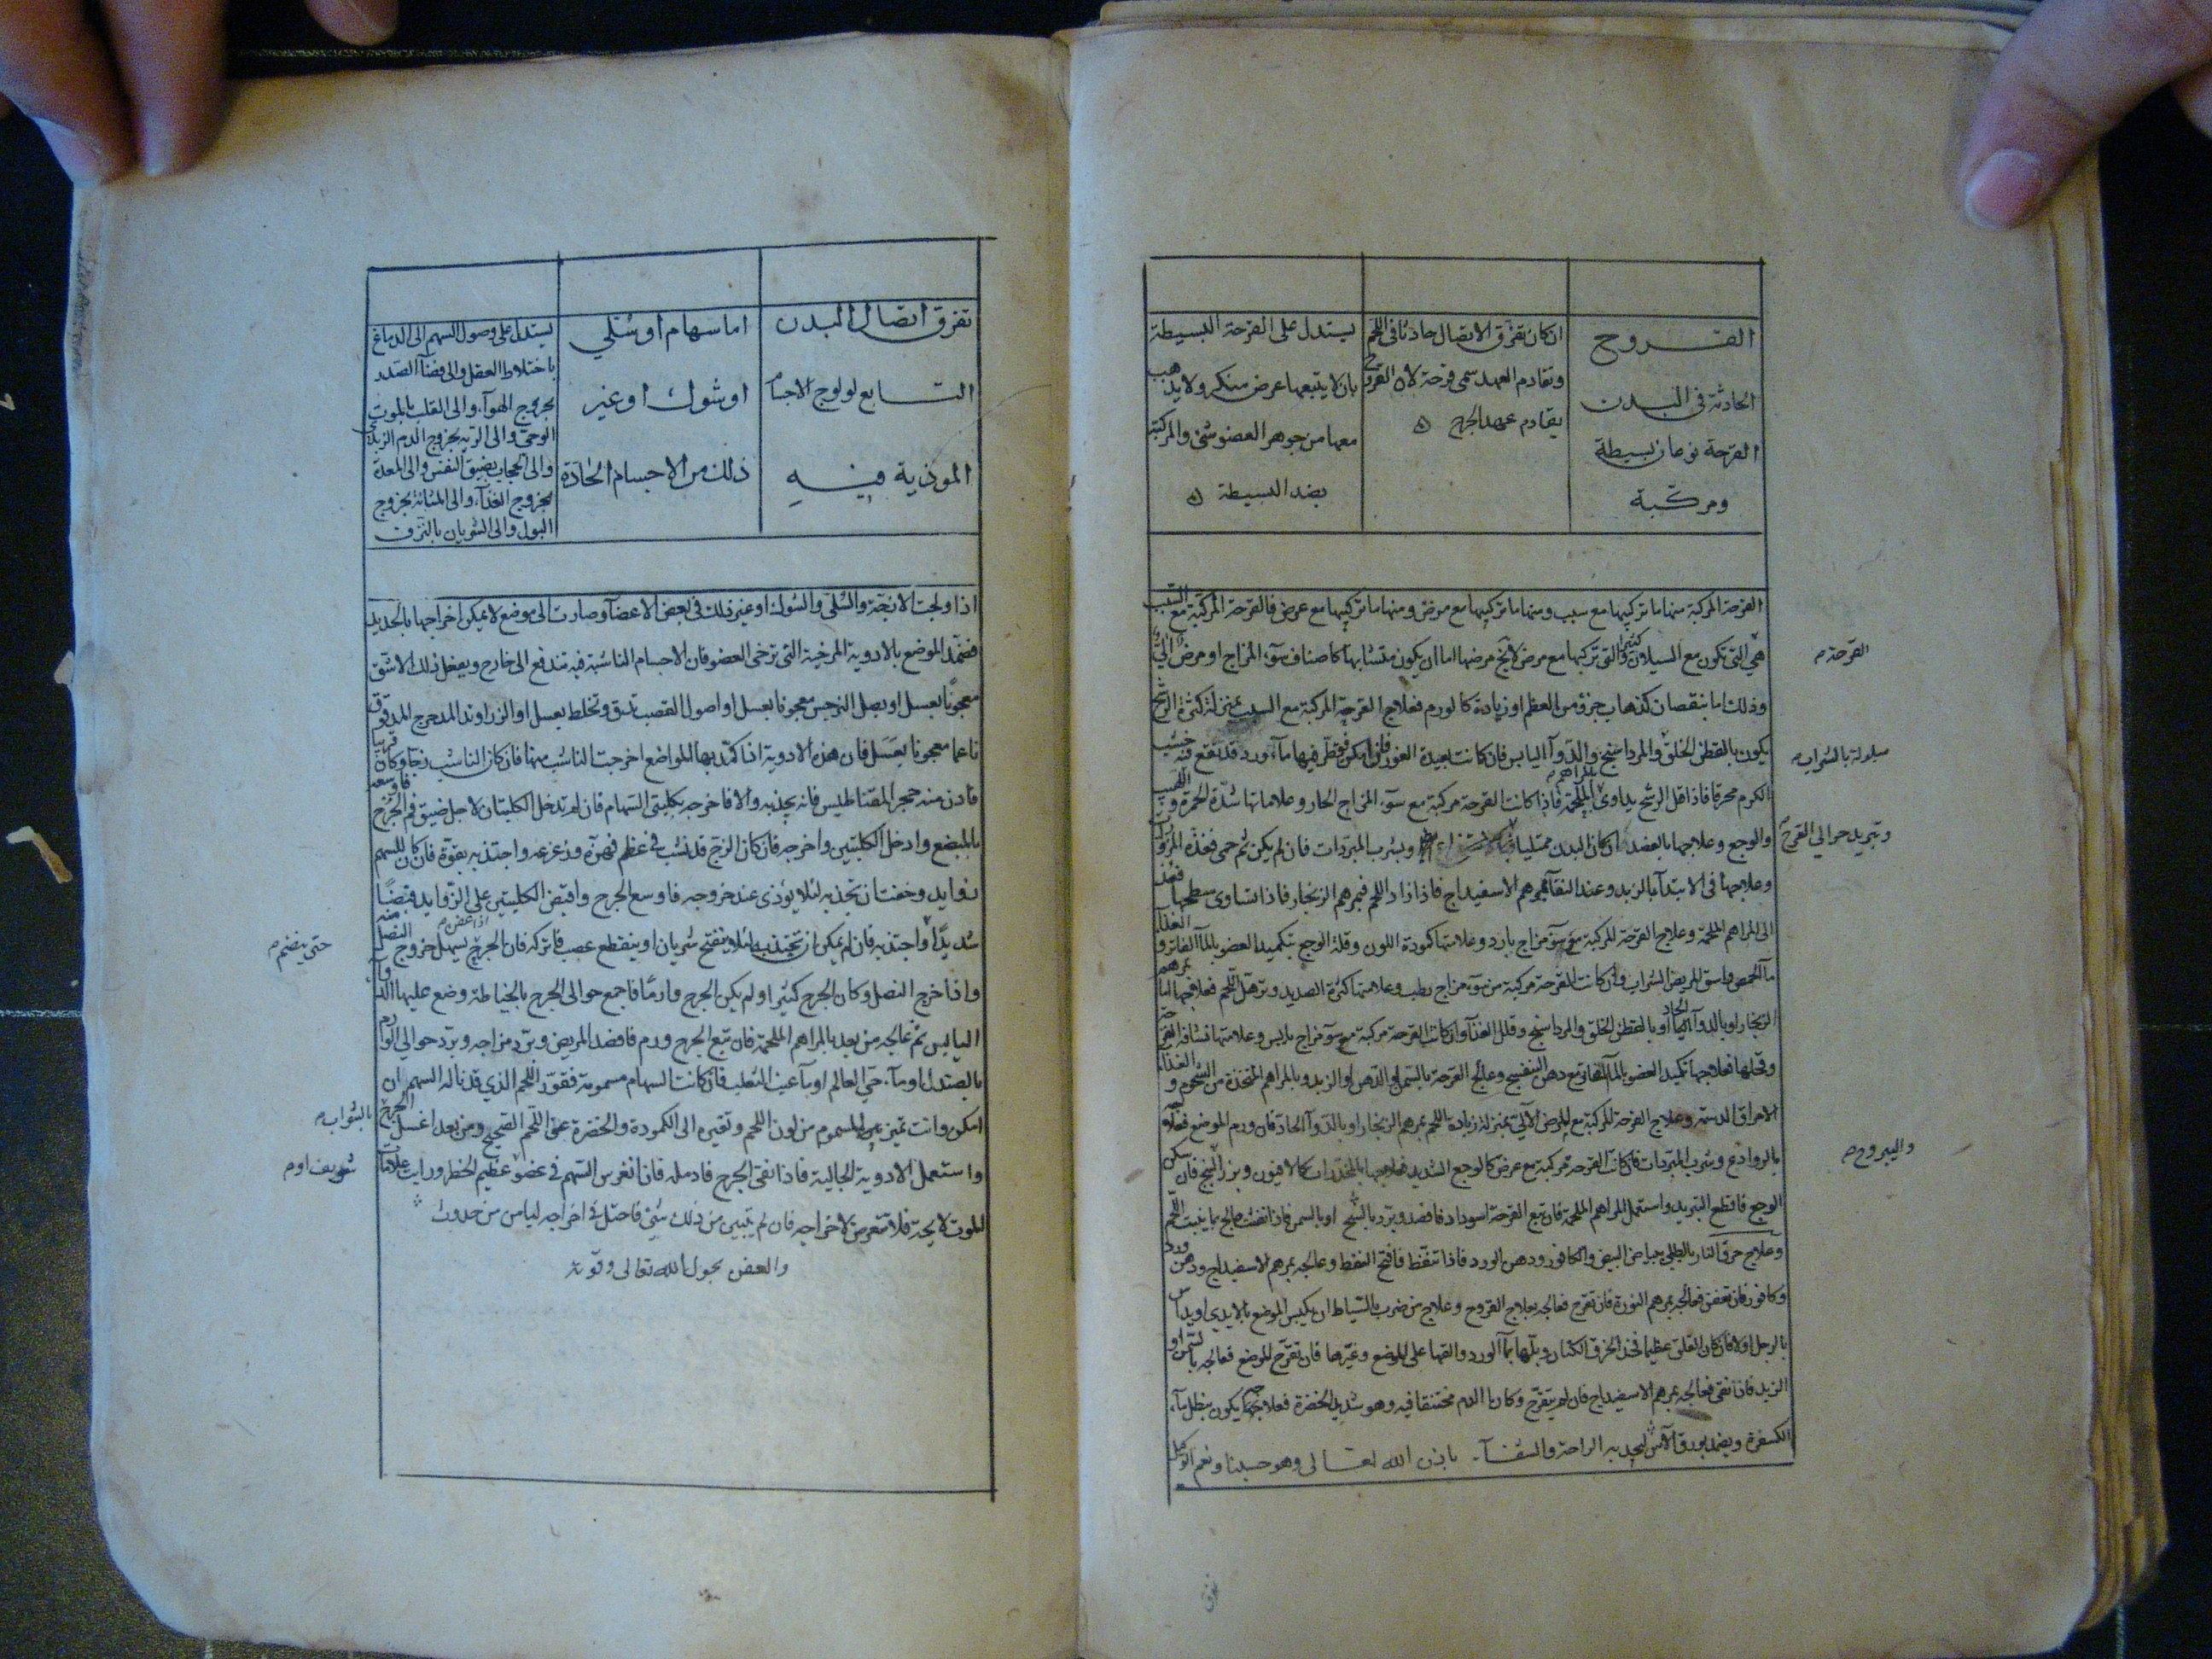 القروح
الحادثة في البدن
القرحة نوعان بسيطة
ومركبة
ان كان تفرق الاتصال حادثا في اللحم
وتقادم العهد سمي قرحة لان القروح
يتقادم عهد الجرح
يستدل على القرحة البسيطة
بان لا يتبعها عرض منكر ولا يذهب
معها من جوهر العضو شي والمركبة
بضد البسيطة
القرحة المركبة منها ما تركيبها مع سبب ومنها ما تركيبها مع مرض ومنها ما تركيبها مع عرض فالقرحة المركبة مع السبب
هي التي تكون مع السيلان والتي تركيبها مع مرض مرضها اما ان يكون متشابها كاصناف سوء المزاج او مرض الي
وذلك اما بنقصان كذهاب جزؤ من العظم او زيادة كالورم فعلاج القرحة المركبة مع السبب بمنزلة كثرة الرشح
يكون بالقطن الخلق والمرداسنج والدوآ اليابس فان كانت بعيدة الغور فان امكن فقطر فيها مآء ورد قد نقع فيه خشب
الكرم محرقا فاذا قل الرشح يداوى بالمراهم الملحمة فاذا كانت القرحة مركبة مع سوء المزاج الحار وعلاماتها شدة الحمرة واللهيب
والوجع وعلاجها بالفصد ان كان البدن ممتليا وبشرب المبردات فان لم يكن ثم حمى فغذه المزور
وعلاجها في الابتدآ بالزبد وعند النقآ بمرهم الاسفيداج فاذا زاد اللحم فبمرهم الزنجار فاذا تساوى سطحها فعد
الى المراهم الملحمة وعلاج القرحة المركبة مع سوء مزاج بارد وعلامتها كمودة اللون وقلة الوجع بتكميد العضو بالمآ الفاتر والغذا
مآ الحمص واسق المريض الشراب وان كانت القرحة مركبة من سوء مزاج رطب وعلامتها كثرة الصديد وترهل اللحم فعلاجها بمرهم
الزنجار او بالدوآ الحاد او بالقطن الخلق والمرداسنج وقلل الغذآ وان كانت القرحة مركبة مع سوء مزاج يابس وعلامتها نشافة
وقحلها فعلاجها تكميد العضو بالمآ مع دهن البنفسج وعالج القرحة بالسمن او الدهن او الزبد وبالمراهم المتخذة من الشحوم والغذا
الامراق الدسمة وعلاج القرحة المركبة مع المرض الآلي بمنزلة زيادة اللحم بمرهم الزنجار او بالدوآ الحاد فان ورم الموضع فعلاجه
بالروادع وشرب المبردات فان كانت القرحة مركبة مع عرض كالوجع الشديد فعلاجها بالمخدرات كالافيون وبزر البنج فان سكن
الوجع فاقطع التبريد واستعمل المراهم الملحمة فان تبع القرحة اسوداد فافصد وبرد اوبالسمن فاذا نقيت عالج بما ينبت اللحم
وعلاج حرق النار بالطلي ببياض البيض والكافور ودهن الورد فاذا تنفط فافتح النفط وعالجه بمرهم الاسفيداج ودهن ورد
وكافور فان تعفن فعالجه بمرهم النورة فان تقرح فعالجه بعلاج القروح وعلاج من ضرب بالسياط ان يكبس الموضع بالايدي او يداس
بالرجل اولا فان كان القلق عظيما فخذ الخرق الكتان وبلها بمآ الورد والقها على الموضع وغيرها فان تقرح الموضع فعالجه بالسمن او
الزبد فاذا نقي فعالجه بمرهم الاسفيداج فان لم يتقرح وكان الدم مختنقا فيه وهو شديد الخضرة فعلاجه يكون بنطل مآء
الكسفرة ويضمد بورق الآس ليجد به الراحة والشفآء باذن الله تعالى وهو حسبنا ونعم الوكيل
القرحة
مبلولة بالشراب
وتبريد حوالي القرح
واليبروح
تفرق
تفرق اتصال البدن
التابع لولوج الاجسام
الموذية فيه
اما سهام او سلي
او شوك او غير
ذلك من الاجسام الحادة
يستدل على وصول السهم الى الدماغ
باختلاط العقل والى فضآ الصدر
بخروج الهوآء والى القلب بالموت
الوحي والى الرية بخروج الدم الزبدي
والى الحجاب بضيق النفس والى المعدة
بخروج الغذآء والى المثانة بخروج
البول والى الشريان بالنزف
اذا ولجت الازجة والسلى والشوك او غير ذلك في بعض الاعضآ وصارت الى موضع لا يمكن اخراجها بالحديد
فضمد الموضع بالادوية المرخية التي ترخي العضو فان الاجسام الناشبة فيه تندفع الى خارج ويفعل ذلك الاشق
معجونا بعسل او بصل النرجس معجونا بعسل او اصول القصب تدق وتخلط بعسل او الزراوند المدحرج المدقوق
ناعما معجونا بعسل فان هذه الادوية اذا كمد بها المواضع اخرجت الناشب منها فان كان الناشب زجا وكان قريبا
فادن منه حجر المقناطيس فانه يجذبه والا فاخرجه بكلبتي السهام فان لم تدخل الكلبتان لاجل ضيق فم الجرح فاوسعه
بالمبضع وادخل الكلبتين واخرجه فان كان الزج قد نشب في عظم فهزه وزعزعه واجتذبه بقوة فان كان للسهم
زوايد وخفت ان تجذبه لئلا يوذى عند خروجه فاوسع الجرح واقبض الكلبتين على الزوايد قبضا
شديدا واجتذبه فان لم يمكن ان تجتذبه لئلا ينفتح شريان او ينقطع عصب فاتركه فان الجرح اذا عفن يسهل خروج النصل منه
واذا خرج النصل وكان الجرح كثيرا ولم يكن الجرح وارما فاجمع حوالى الجرح بالخياطة وضع عليها الدوآ
اليابس ثم عالجه من بعد بالمراهم الملحمة فان تبع الجرح ورم فافصد المريض وبرد مزاجه وبرد حوالي الورم
بالصندل او مآء حي العالم او بمآ عنب الثعلب فان كانت السهام مسمومة فقور اللحم الذي قد ناله السهم ان
امكن وانت تميز بين المسموم من لون اللحم وتغيره الى الكمودة والخضرة عن اللحم الصحيح ومن بعد اغسل الجرح
واستعمل الادوية الجالية فاذا نقي الجرح فادمله فان انغرس السهم في عضو عظيم الخطر ورايت علامات
الموت لايحة فلا تتعرض لاخراجه فان لم يتبين من ذلك شي فاحتل في اخراجه ليامن من حدوث
والعفن بحول الله تعالى وقوته
حتى ينضم
بالشراب
شريف او